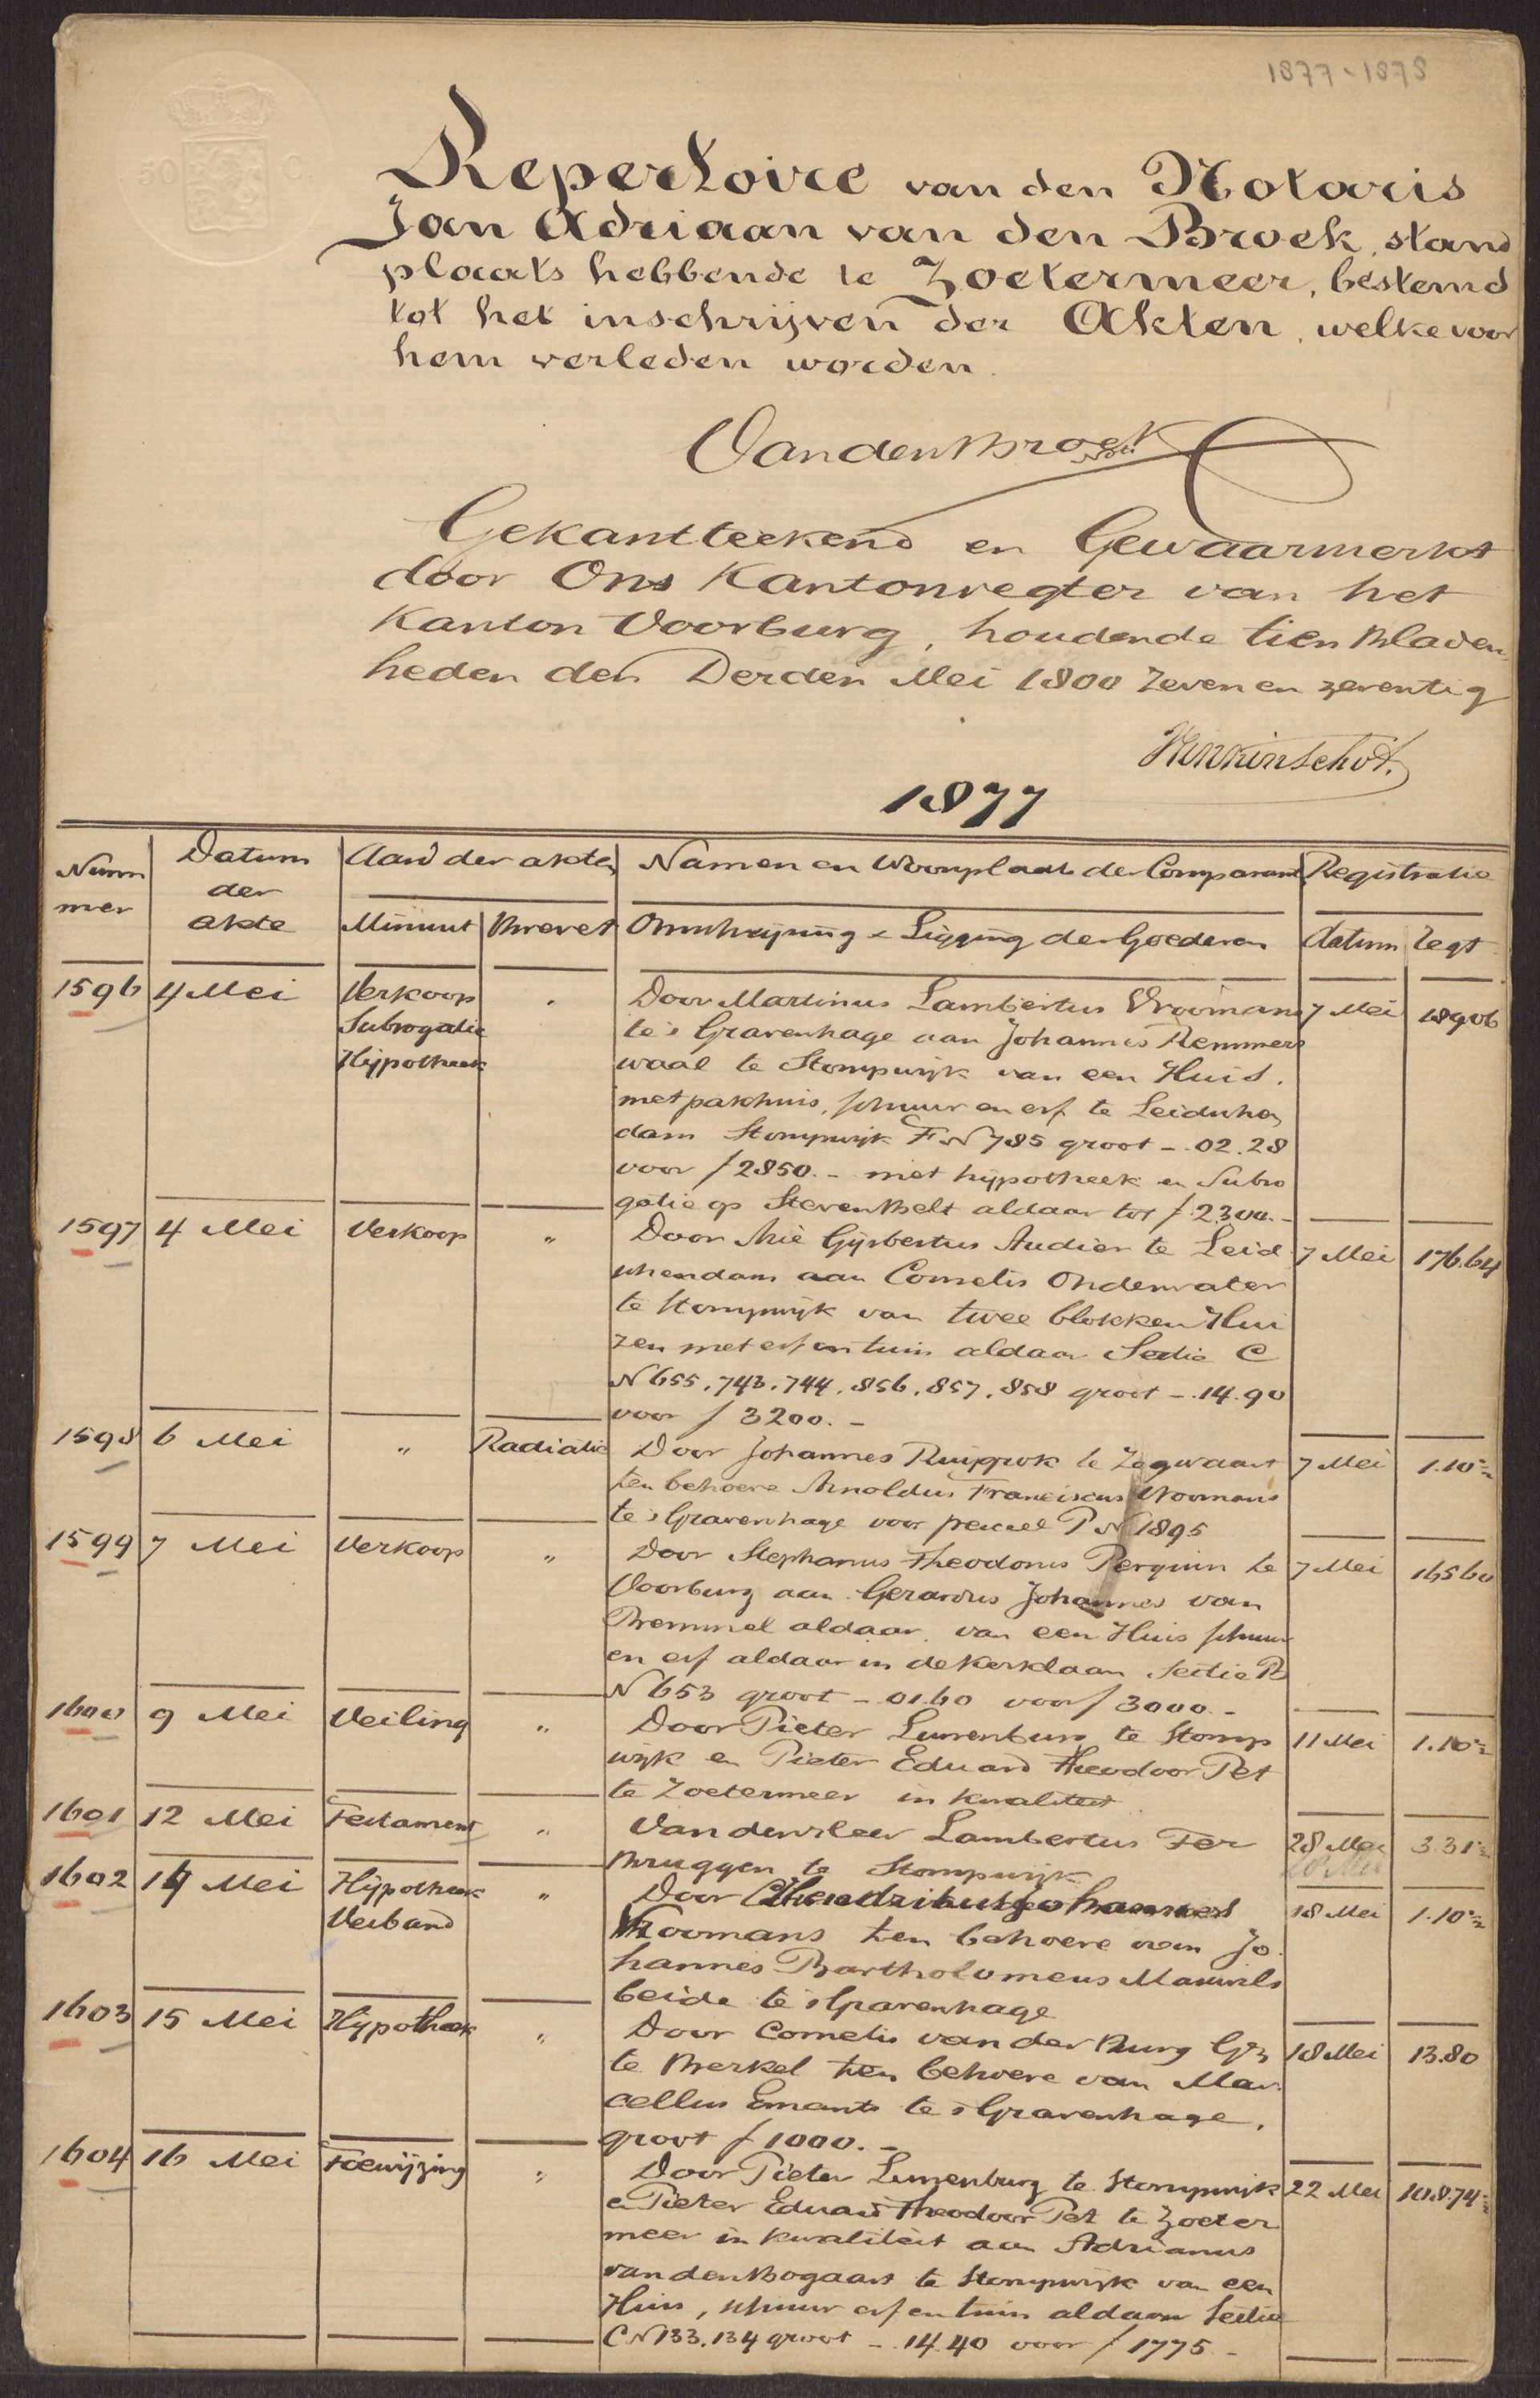 1877-1878
50 C.
Repertoire van den Notaris
Jan Adriaan van den Broek, stand
plaats hebbende te Zoetermeer, bestemd
tot het inschrijven der Akten, welke voor
hem verleden worden.
VandenBroek
Gekantteekend en Gewaarmerkt
door Ons Kantonregter van het
Kanton Voorburg, houdende tien Bladen
heden den Derden Mei 1800 Zeven en zeventig
1877
Num
mer
Datum
der
akte
Aard der akten
Minuut
Brevet
Namen en Woonplaats der Comparant
Omschrijving & Ligging der Goederen
Registratie
datum
regt
1596 4 Mei Verkoop " Door Martinus Lambertus Vroomans 7 Mei 189.06
Subrogatie te 's Gravenhage aan Johannes Remmers
Hypotheek waal te Stompwijk van een Huis,
met pakhuis, schuur en erf te Leidschen
dam Stompwijk F N 785 groot -. 02.28
voor f 2850.- met hypotheek en Subro
gatie op Steven Belt aldaar tot f 2300.-
1597 4 Mei Verkoop " Door Arie Gijsbertus Audier te Leid 7 Mei 176.64
schendam aan Cornelis Onderwater
te Stompwijk van twee blokken Hui
zen met erf en tuin aldaar Sectie C
N 655, 743, 744, 856, 857, 858 groot -. 14.90
voor f 3200.-
1598 6 Mei " Radiatie Door Johannes Ruigrok te Zegwaart 7 Mei 1.10½
ten behoeve Arnoldus Franciscus Vroomans
te 's Gravenhage voor perceel P N 1895
1599 7 Mei Verkoop " Door Stephanus Theodorus Perquin te 7 Mei 165.60
Voorburg aan Gerardus Johannes van
Bremmel aldaar van een Huis schuur
en erf aldaar in de Kerklaan Sectie B
N 653 groot -. 01.60 voor f 3000.-
1600 9 Mei Veiling " Door Pieter Lunenburg te Stomp 11 Mei 1.10½
wijk en Pieter Eduard Theodoor Pet
te Zoetermeer in kwaliteit
1601 12 Mei Testament " Van den Heer Lambertus Ter 28 Mei 3.31½
Bruggen te Stompwijk
1602 14 Mei Hypotheek " Door Hendrikus Johannes 18 Mei 1.10½
Verband Vroomans ten behoeve van Jo
hannes Bartholomeus
beide te 's Gravenhage
1603 15 Mei Hypotheek " Door Cornelis van der Burg Gz 18 Mei 13.80
te Berkel ten behoeve van Mar
cellus Emants te 's Gravenhage,
groot f 1000.-
1604 16 Mei Toewijzing " Door Pieter Lunenburg te Stompwijk 22 Mei 108.74½
en Pieter Eduard Theodoor Pet te Zoeter
meer in kwaliteit aan Adrianus
van den Bogaart te Stompwijk van een
Huis, schuur erf en tuin aldaar Sectie
C N 133, 134 groot -. 14.40 voor f 1775.-